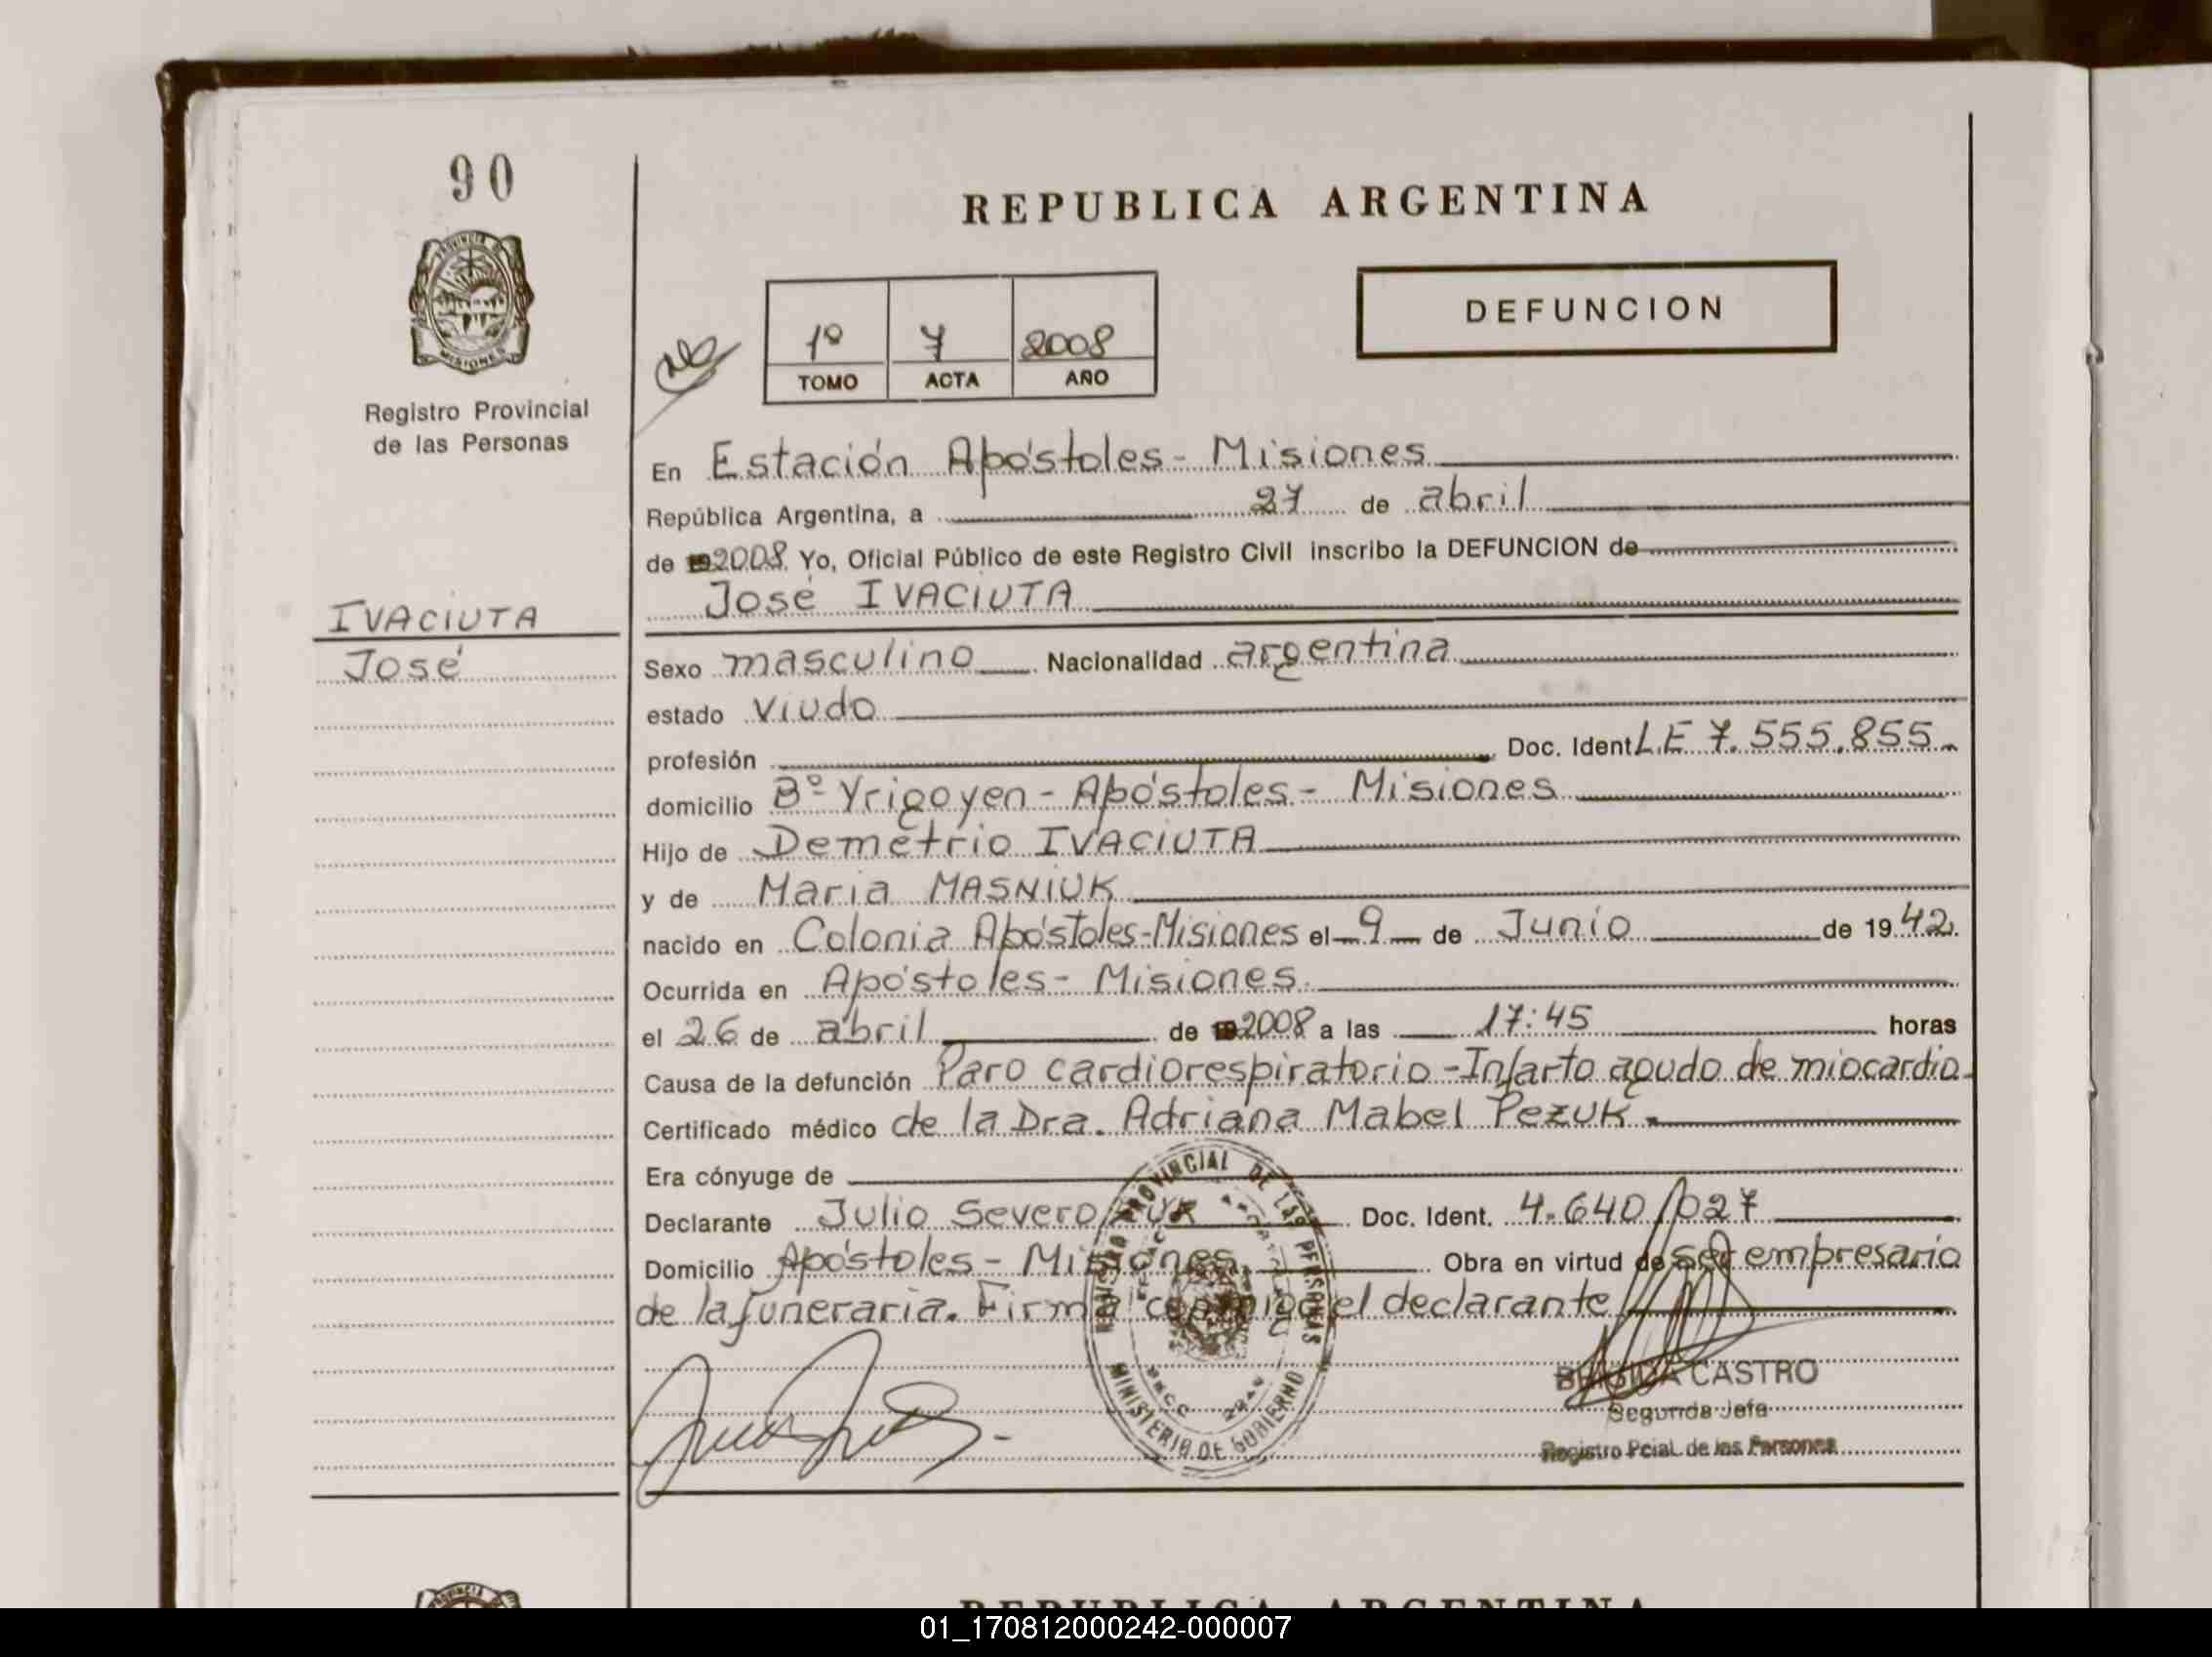 90
REPUBLICA ARGENTINA
PROVINCIA DE
MISIONES
DEFUNCION
1º 7 2008
TOMO ACTA AÑO
Registro Provincial
de las Personas
En Estación Apóstoles - Misiones
República Argentina, a 27 de abril
de 19 2008. Yo, Oficial Público de este Registro Civil inscribo la DEFUNCION de
José IVACIUTA
IVACIUTA
José
Sexo masculino Nacionalidad argentina
estado Viudo
profesión Doc. Ident. L.E 7.555.855.
domicilio Bº Yrigoyen - Apóstoles - Misiones
Hijo de Demetrio IVACIUTA
y de Maria MASNIUK
nacido en Colonia Apóstoles-Misiones el 9 de Junio de 1942.
Ocurrida en Apóstoles - Misiones.
el 26 de abril de 19 2008 a las 17:45 horas
Causa de la defunción Paro cardiorespiratorio - Infarto agudo de miocardio.
Certificado médico de la Dra. Adriana Mabel Pezuk.
Era cónyuge de
Declarante Julio Severo Doc. Ident. 4.640.027
Domicilio Apóstoles - Misiones. Obra en virtud de ser empresario
de la funeraria. Firma conmigo el declarante
REGISTRO PROVINCIAL DE LAS PERSONAS
MINISTERIO DE GOBIERNO
CASTRO
Segunda Jefa
Registro Pcial. de las Personas
REPUBLICA ARGENTINA
01_170812000242-000007